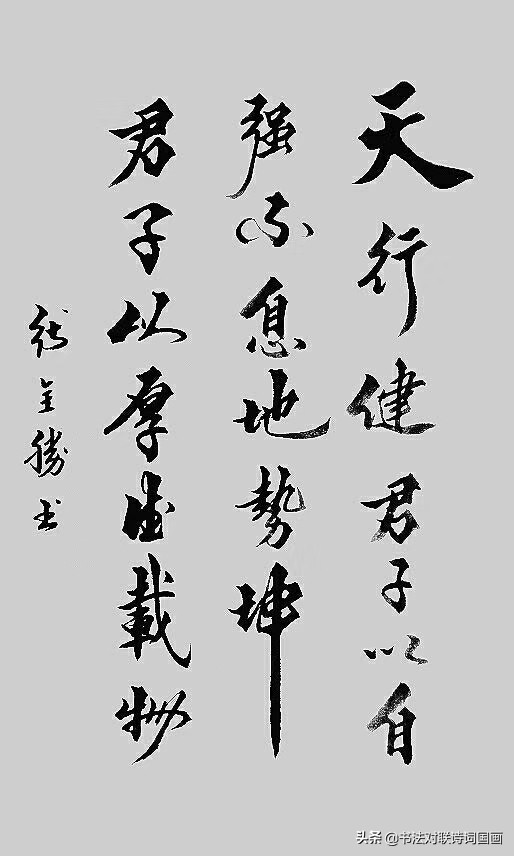 天行健君子以自
强不息地势坤
君子以厚德載物
全勝书
头条 @书法对联诗词国画